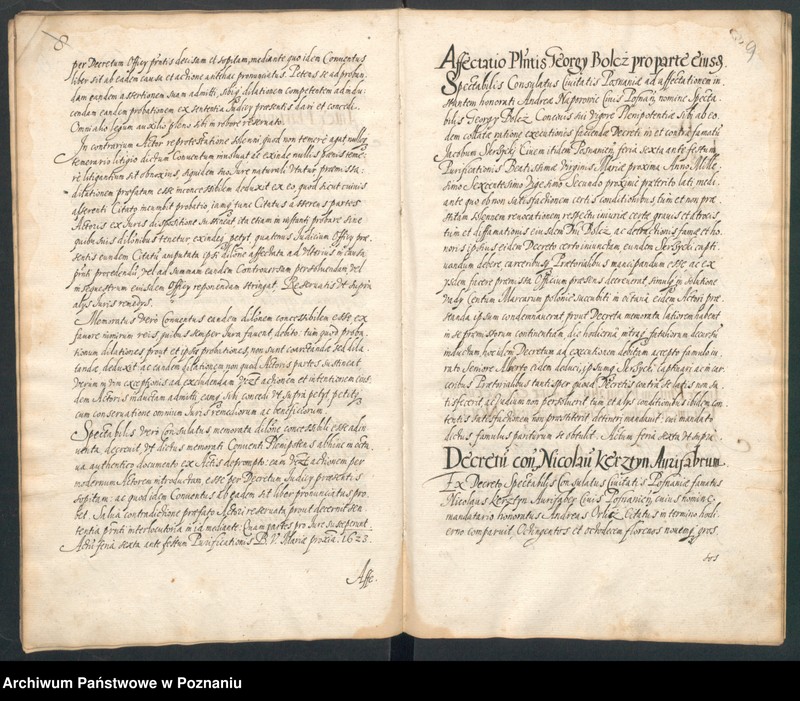 8
per Decretum Officy pñtis decisam et sopitam, mediante quo idem Conventus
liber sit ab eadem causa et actione anthac pronunciatus. Petens se ad proban
dam eandem assertionem suam admitti, sibiq dilationem competentem ad indu
cendam eandem probationem ex sententia Judicy presentis dari et concedi.
Omni alio legum auxilio pleno sibi in robore reservato.
In contrarium Actor reprotestatione solenni quod non temere agat
temerario litigio dictum Conventum
litigantium sit obnoxius, siquidem suo Jure naturali utatur præmissa
dilationem præfatam esse inconcessibilem deduxit ex eo, quod sicut cuivis
asserenti Citato incumbit probatio, iamq tunc Citatus asserens partes
Actoris ex Juris dispositione sustineat
quibusvis dilõnibus tenetur, exindeq petyt, quatenus Judicium Officy præ
sentis eundem Citatũ amputata ipsi dilõne affectata ad ulteriora in causa
pñti procedendũ vel ad summam eandem Controversam persolvendam vel
in sequestrum eiusdem Officy reponendam stringat. Reservatis ut supra
alys Juris remedys.
Memoratus verò Conventus eandem dilõnem concessibilem esse ex
favore
tionum dilationes prout et ipsæ probationes, non sunt coarctandæ sed dila
tandæ deduxit ac eandem dilationem non quod Actoris partes sustineat
verum in vim exceptionis ad excludendam actionem et intentionem eius
dem Actoris inductam admitti eamq sibi concedi ut supra petyt
cum conservatione omnium Juris remediorum ac beneficiorum.
Spectabilis verò Consulatus memorata dilõne concessibili esse adin
venta, decrevit, ut dictus memorati Convent Plenipotens abhinc in octa
va authentico documento ex Actis deprompto eam actionem per
modernum Actorem introductam, esse per Decretum Judicy præsentis
sopitam: ac quod idem Conventus ab eadem sit liber pronunciatus pro
bet. Salva contradictione præfato Actori reservata prout decernit sen
tentia pñti interlocutoria in ea mediante. Quam partes pro Jure susceperunt.
Actũ feria sexta ante festum Purificationis B. V. Mariæ proxia. 1623.
Affe.
9
Affectatio Pñtis Georgy Bolcz pro parte Eius
Spectabilis Consulatus Civitatis Posnaniæ ad affectationem in
stantem honorati Andreæ Naprovic Civis Posnañ, nomine Specta
bilis Georgy Bolcz Concivis sui vigore Plenipotentiæ sibi ab eo
dem collatæ ratione executionis faciendæ Decreti in et contra famatũ
Jacobum Serszycki Civem itidem Posnanieñ feria sexta ante festum
Purificationis Beatissimæ Virginis Mariæ proxima Anno Mille
simo Sexcentesimo Vigesimo Secundo proxime præterito lati medi
ante quo ob non satisfactionem certis conditionibus, tum et non præ
stitam solennem revocationem respectu iniuriæ certæ gravis et atrocis
tum et diffamationis eiusdem Dni Bolcz ac detractionis famæ et ho
noris ipsius eidem Decreto certo inunctam eundem Serszycki capti
vandum debere, carceribusq Prætorialibus mancipandum esse ac ex
præmissa Officium præsens decreverat, simulq in solutione
vady Centum Marcarum polonic succubiti in octava eidem Actori præ
standa ipsum condemnaverat prout Decreta memorata latiorem habent
in se præmissorum continentiam, die hodierna
inductum, hoc idem Decretum ad executionem debitam accepto famulo iu
rato Seniore Alberto eidem deduci, ipsumq Serszycki captivari, ac in car
ceribus Prætorialibus tantisper quoad Decretis contra se latis non sa
tisfecerit, ac Judicium non persolverit tum et alys conditionibus ibidem con
tentis satisfactionem non præstiterit detineri mandavit, cui mandato
dictus famulus pariturum se obtulit. Actum feria sexta ut supra.
Decretũ coñ Nicolaũ Kersztyn Aurifabrum.
Ex Decreto Spectabilis Consulatus Civitatis Posnaniæ famatus
Nicolaus Kersztyn Aurifaber Civis Posnanieñ, cuius nomine
mandatario honoratus Andreas Orlicz Citatus in termino hodi
erno comparuit, Octingentos et octodecem florenos novemq gros
sos
Archiwum Państwowe w Poznaniu